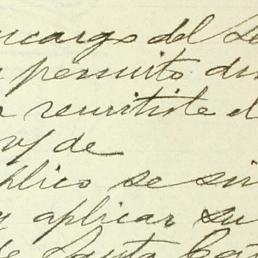 encargo del Se
permito di
remitirle el
v/ de
plico se sir
y aplicar su
de Santa